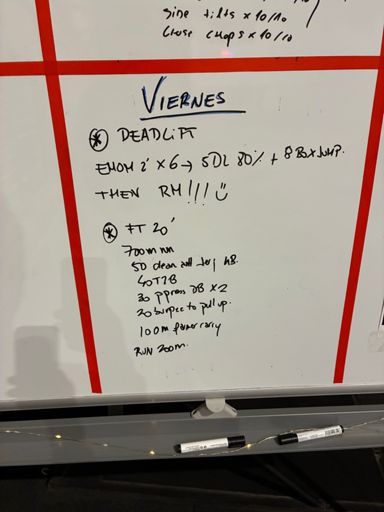 side tilts x 10/10
close chops x 10/10
VIERNES
* DEADLIFT
EMOM 2' x 6 → 5DL 80% + 8 BOX JUMP.
THEN RM!!!
* FT 20'
700m run
50 clean and jerj KB.
40 T2B
30 ppress DB x 2
20 burpee to pull up.
100m farmer carry
RUN 200m.